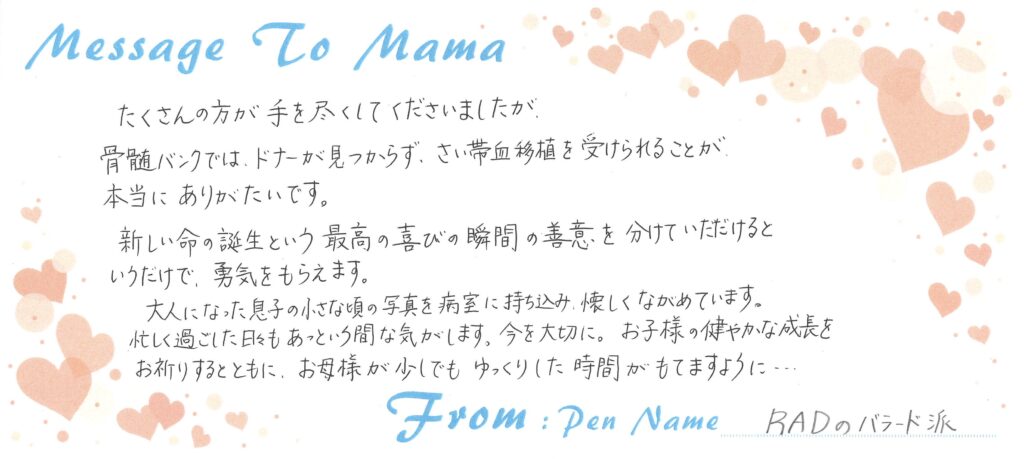 Message To Mama
たくさんの方が手を尽くしてくださいましたが、
骨髄バンクでは、ドナーが見つからず、さい帯血移植を受けられることが、
本当にありがたいです。
新しい命の誕生という最高の喜びの瞬間の善意を分けていただけると
いうだけで、勇気をもらえます。
大人になった息子の小さな頃の写真を病室に持ち込み、懐しくながめています。
忙しく過ごした日々もあっという間な気がします。今を大切に。お子様の健やかな成長を
お祈りするとともに、お母様が少しでもゆっくりした時間がもてますように…
From : Pen Name RADのバラード派